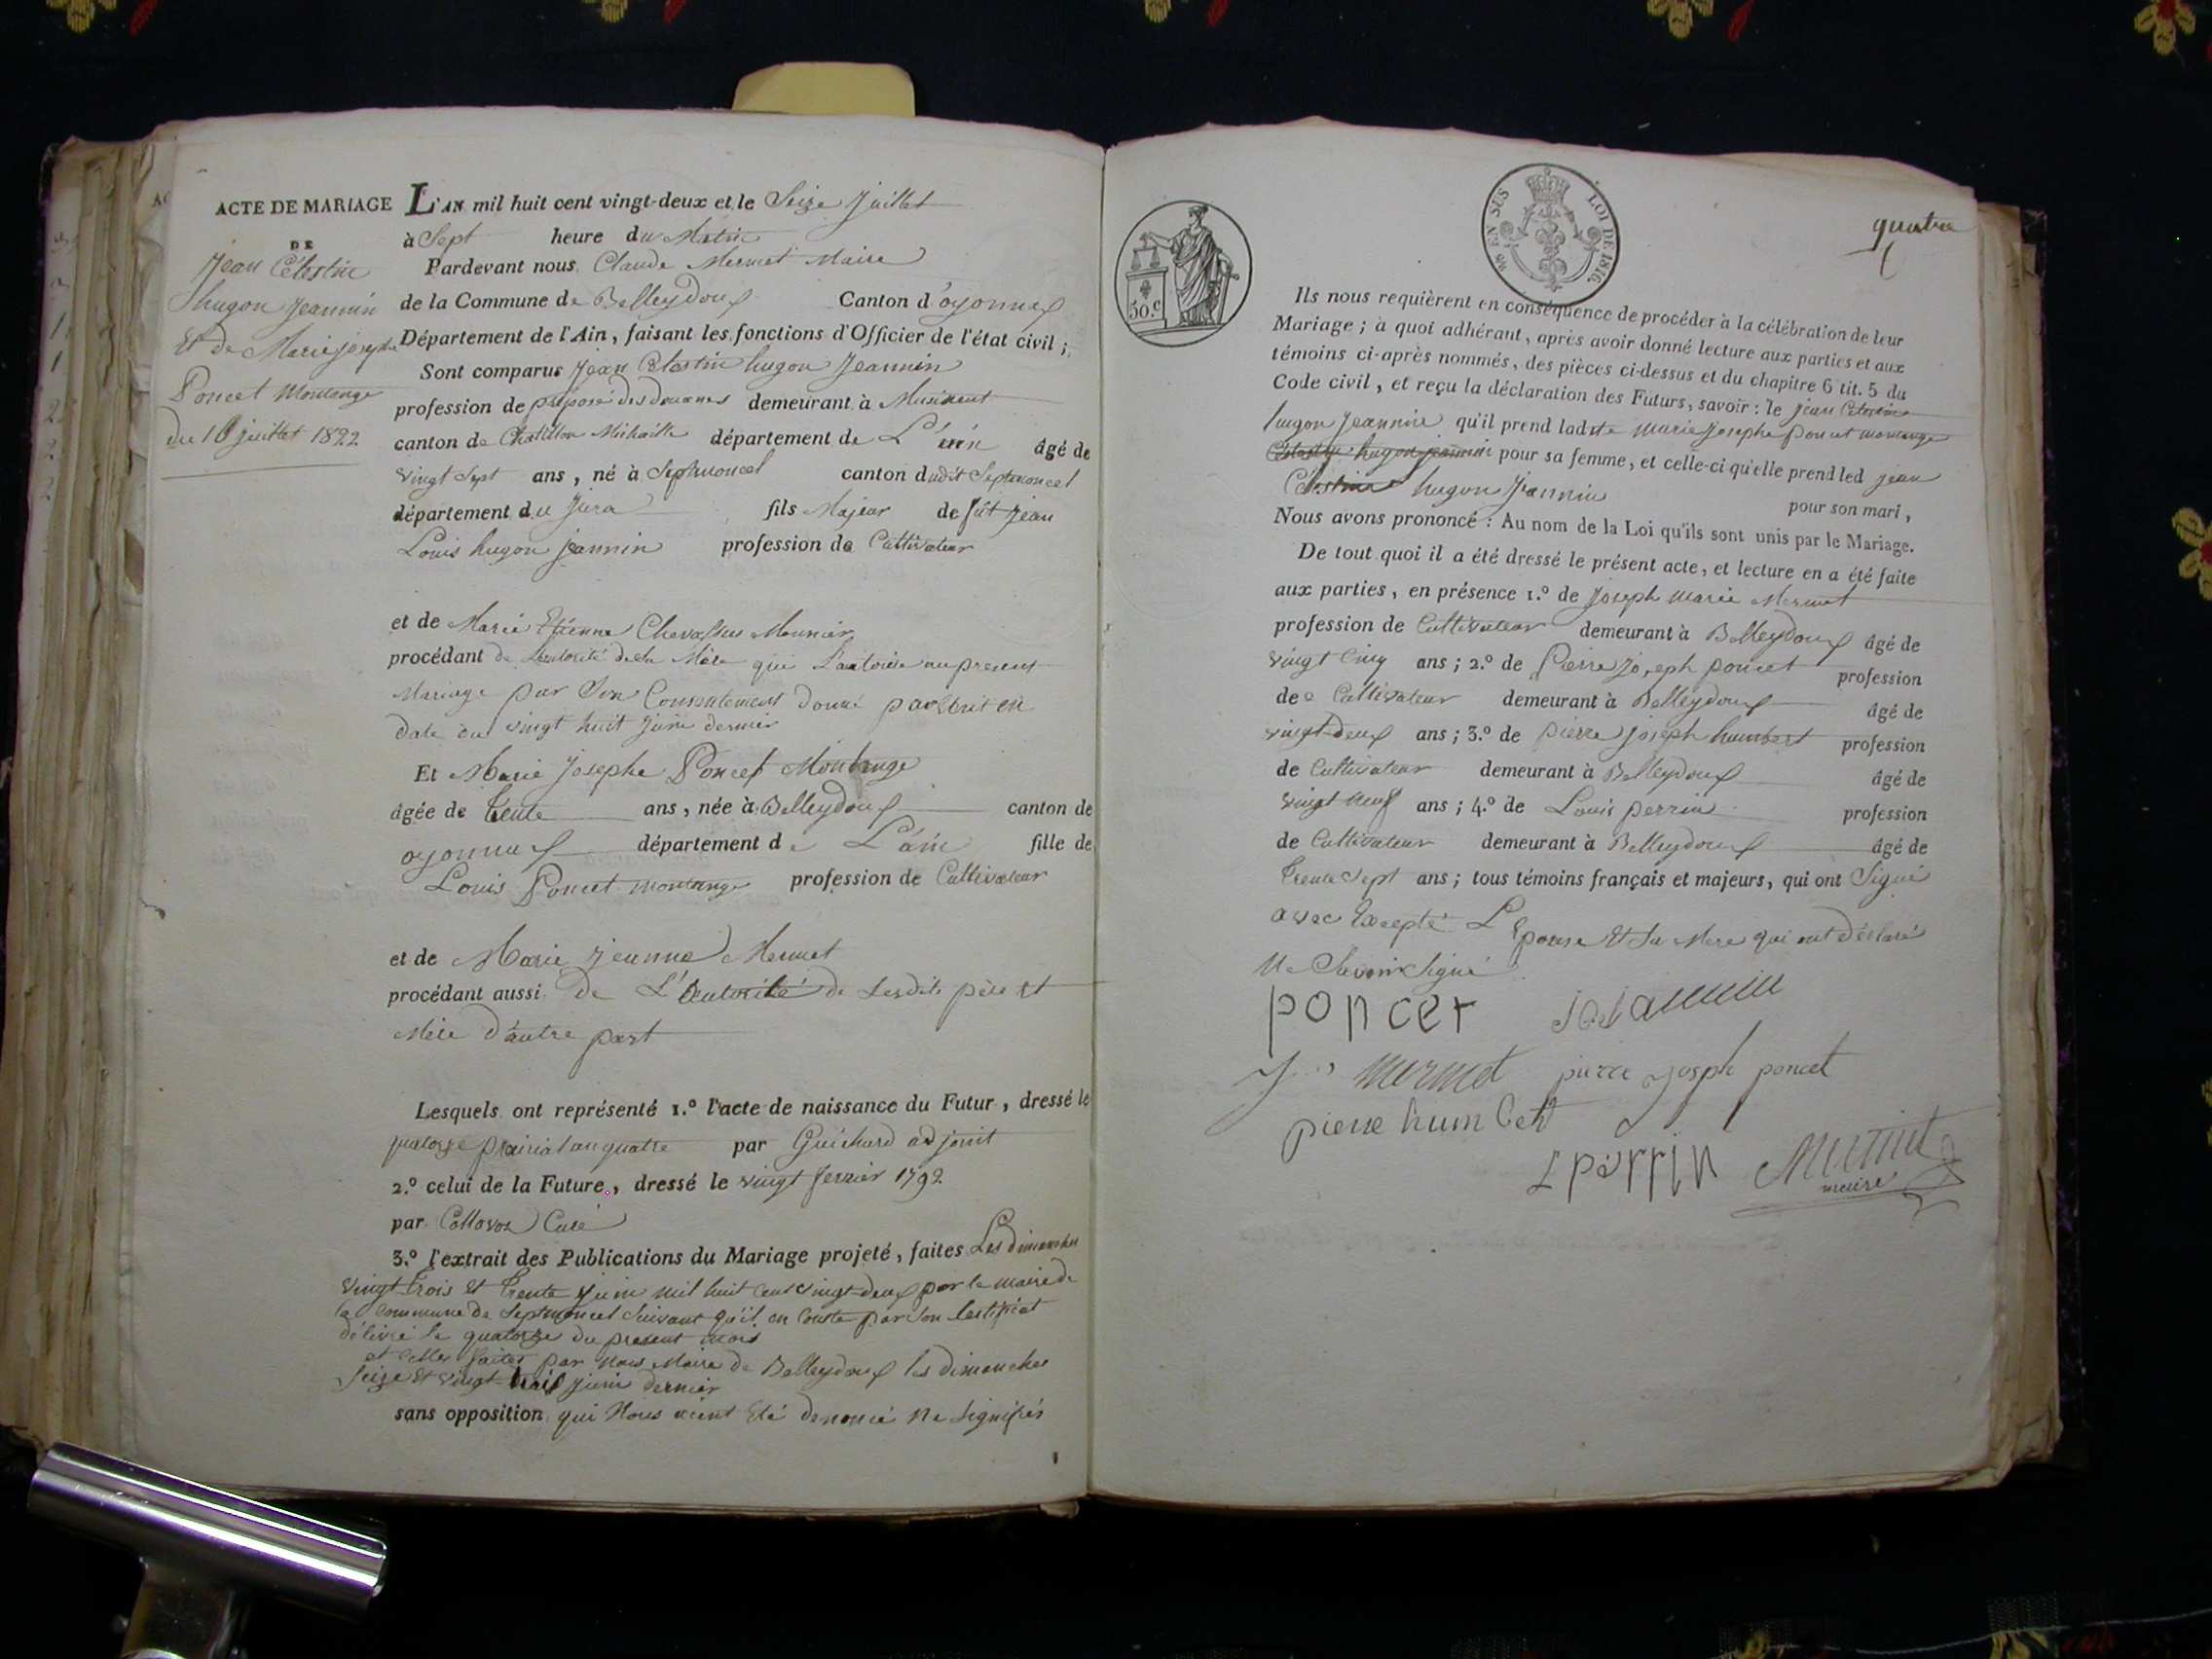 ACTE DE MARIAGE
DE
Jean Célestin
hugon Jeannin
Et de Marie josephe
Poncet Montange
du 16 juillet 1822
L'AN mil huit cent vingt-deux et le Seize Juillet
à Sept heure du Matin
Pardevant nous Claude Mermet Maire
de la Commune de Belleydoux Canton d'oyonnax
Département de l'Ain, faisant les fonctions d'Officier de l'état civil ;
Sont comparus Jean Célestin hugon Jeannin
profession de préposé des douanes demeurant à Musinent
canton de Chatillon Michaille département de L'ain âgé de
vingt Sept ans, né à Septmoncel canton dudit Septmoncel
département du Jura fils Majeur de fût Jean
Louis hugon jeannin profession de Cultivateur
et de Marie Etienne Chevassus Monnier
procédant de Lautorité de la Mère qui Lautorise au present
Mariage par Son Consentement donné par Ecrit en
date du vingt huit Juin dernier
Et Marie Josephe Poncet Montange
âgée de trente ans, née à Belleydoux canton de
oyonnax département de L'ain fille de
Louis Poncet montange profession de Cultivateur
et de Marie jeanne Mermet
procédant aussi de L'autorité de Lesdits père et
Mère d'autre part
Lesquels ont représenté 1.º l'acte de naissance du Futur, dressé le
quatorze prairial an quatre par Guichard adjoint
2.º celui de la Future, dressé le vingt fevrier 1792
par Collovoz Curé
3.º l'extrait des Publications du Mariage projeté, faites Les dimanches
vingt trois et trente Juin mil huit cent vingt-deux par le maire de
la commune de Septmoncel Suivant qu'il en Conste par Son Certificat
délivré le quatorze du present mois
et celles faites par nous Maire de Belleydoux les dimanches
Seize et vingt-trois juin dernier
sans opposition qui Nous aient Eté denoncé Ne Signifiés
quatre
EN SUS
LOI DE 1816
50.c
Ils nous requièrent en conséquence de procéder à la célébration de leur
Mariage ; à quoi adhérant, après avoir donné lecture aux parties et aux
témoins ci-après nommés, des pièces ci-dessus et du chapitre 6 tit. 5 du
Code civil, et reçu la déclaration des Futurs, savoir : le jean Celestin
hugon Jeannin qu'il prend ladite marie Josephe poncet montange
hugon jeannin pour sa femme, et celle-ci qu'elle prend led jean
Célestin hugon Jeannin pour son mari,
Nous avons prononcé : Au nom de la Loi qu'ils sont unis par le Mariage.
De tout quoi il a été dressé le présent acte, et lecture en a été faite
aux parties, en présence 1.º de Joseph marie Mermet
profession de Cultivateur demeurant à Belleydoux âgé de
vingt Cinq ans ; 2.º de Pierre Joseph poncet profession
de Cultivateur demeurant à Belleydoux âgé de
vingt-deux ans ; 3.º de pierre joseph humbert profession
de Cultivateur demeurant à Belleydoux âgé de
vingt neuf ans ; 4.º de Louis perrin profession
de Cultivateur demeurant à Belleydoux âgé de
trente Sept ans ; tous témoins français et majeurs, qui ont Signé
avec Excepté L'Epouse Et Sa Mere qui ont déclaré
Ne Savoir Signé
poncet jeannin
mermet pierre Joseph poncet
pierre humbert
L perrin Mermet
maire